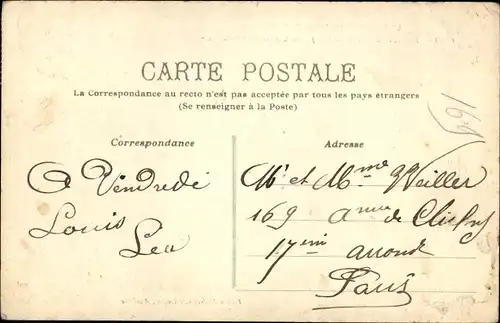 CARTE POSTALE
La Correspondance au recto n'est pas acceptée par tous les pays étrangers
(Se renseigner à la Poste)
Correspondance
A Vendredi
Louis
Lea
Adresse
Mr et Mme Weiller
169 de Clichy
17em arrond
Paris